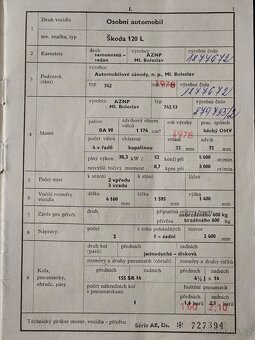 I.
1 Druh vozidla Osobní automobil
tov. značka, typ Škoda 120 L
2 Karosérie druh výrobce výrobní číslo
samonosná - sedan AZNP Ml. Boleslav 1877672
3 Podvozek (rám) výrobce
Automobilové závody, n. p., Ml. Boleslav
typ rok výroby výrobní číslo
742 1978 1877672
4 Motor výrobce typ výrobní číslo
AZNP Ml. Boleslav 742.12
palivo zdvihový objem válců rok výroby prac. způsob
BA 90 1 174 cm³ 1978 4dobý OHV
počet válců chlazení vrtání zdvih
4 v řadě kapalinou 72 mm 72 mm
plný výkon 38,3 kW 52 k při 5 000 ot/min.
největší točivý moment 8,7 při 3 000 ot/min.
5 Počet míst k sezení k stání lůžek
2 vpředu
3 vzadu
6 Vnější rozměry vozidla délka šířka výška
4 160 mm 1 595 mm 1 400 mm
7 Závěs pro přívěs druh přípojná
nebrzděného 400 kg
brzděného 600 kg
8 Nápravy počet z toho poháněných rozvor
2 1 - zadní 2 400 mm
9 Kola, pneumatiky, obruče, pásy druh kol (pásů)
jednoduchá - disková
rozměry pneumatik
155 SR 14
počet náhradních kol s pneumatikami
1
1,6 barů 2,1 bar.
1,60 2,10
Technický průkaz motor. vozidla - přívěsu Série AE, čís. * 727394